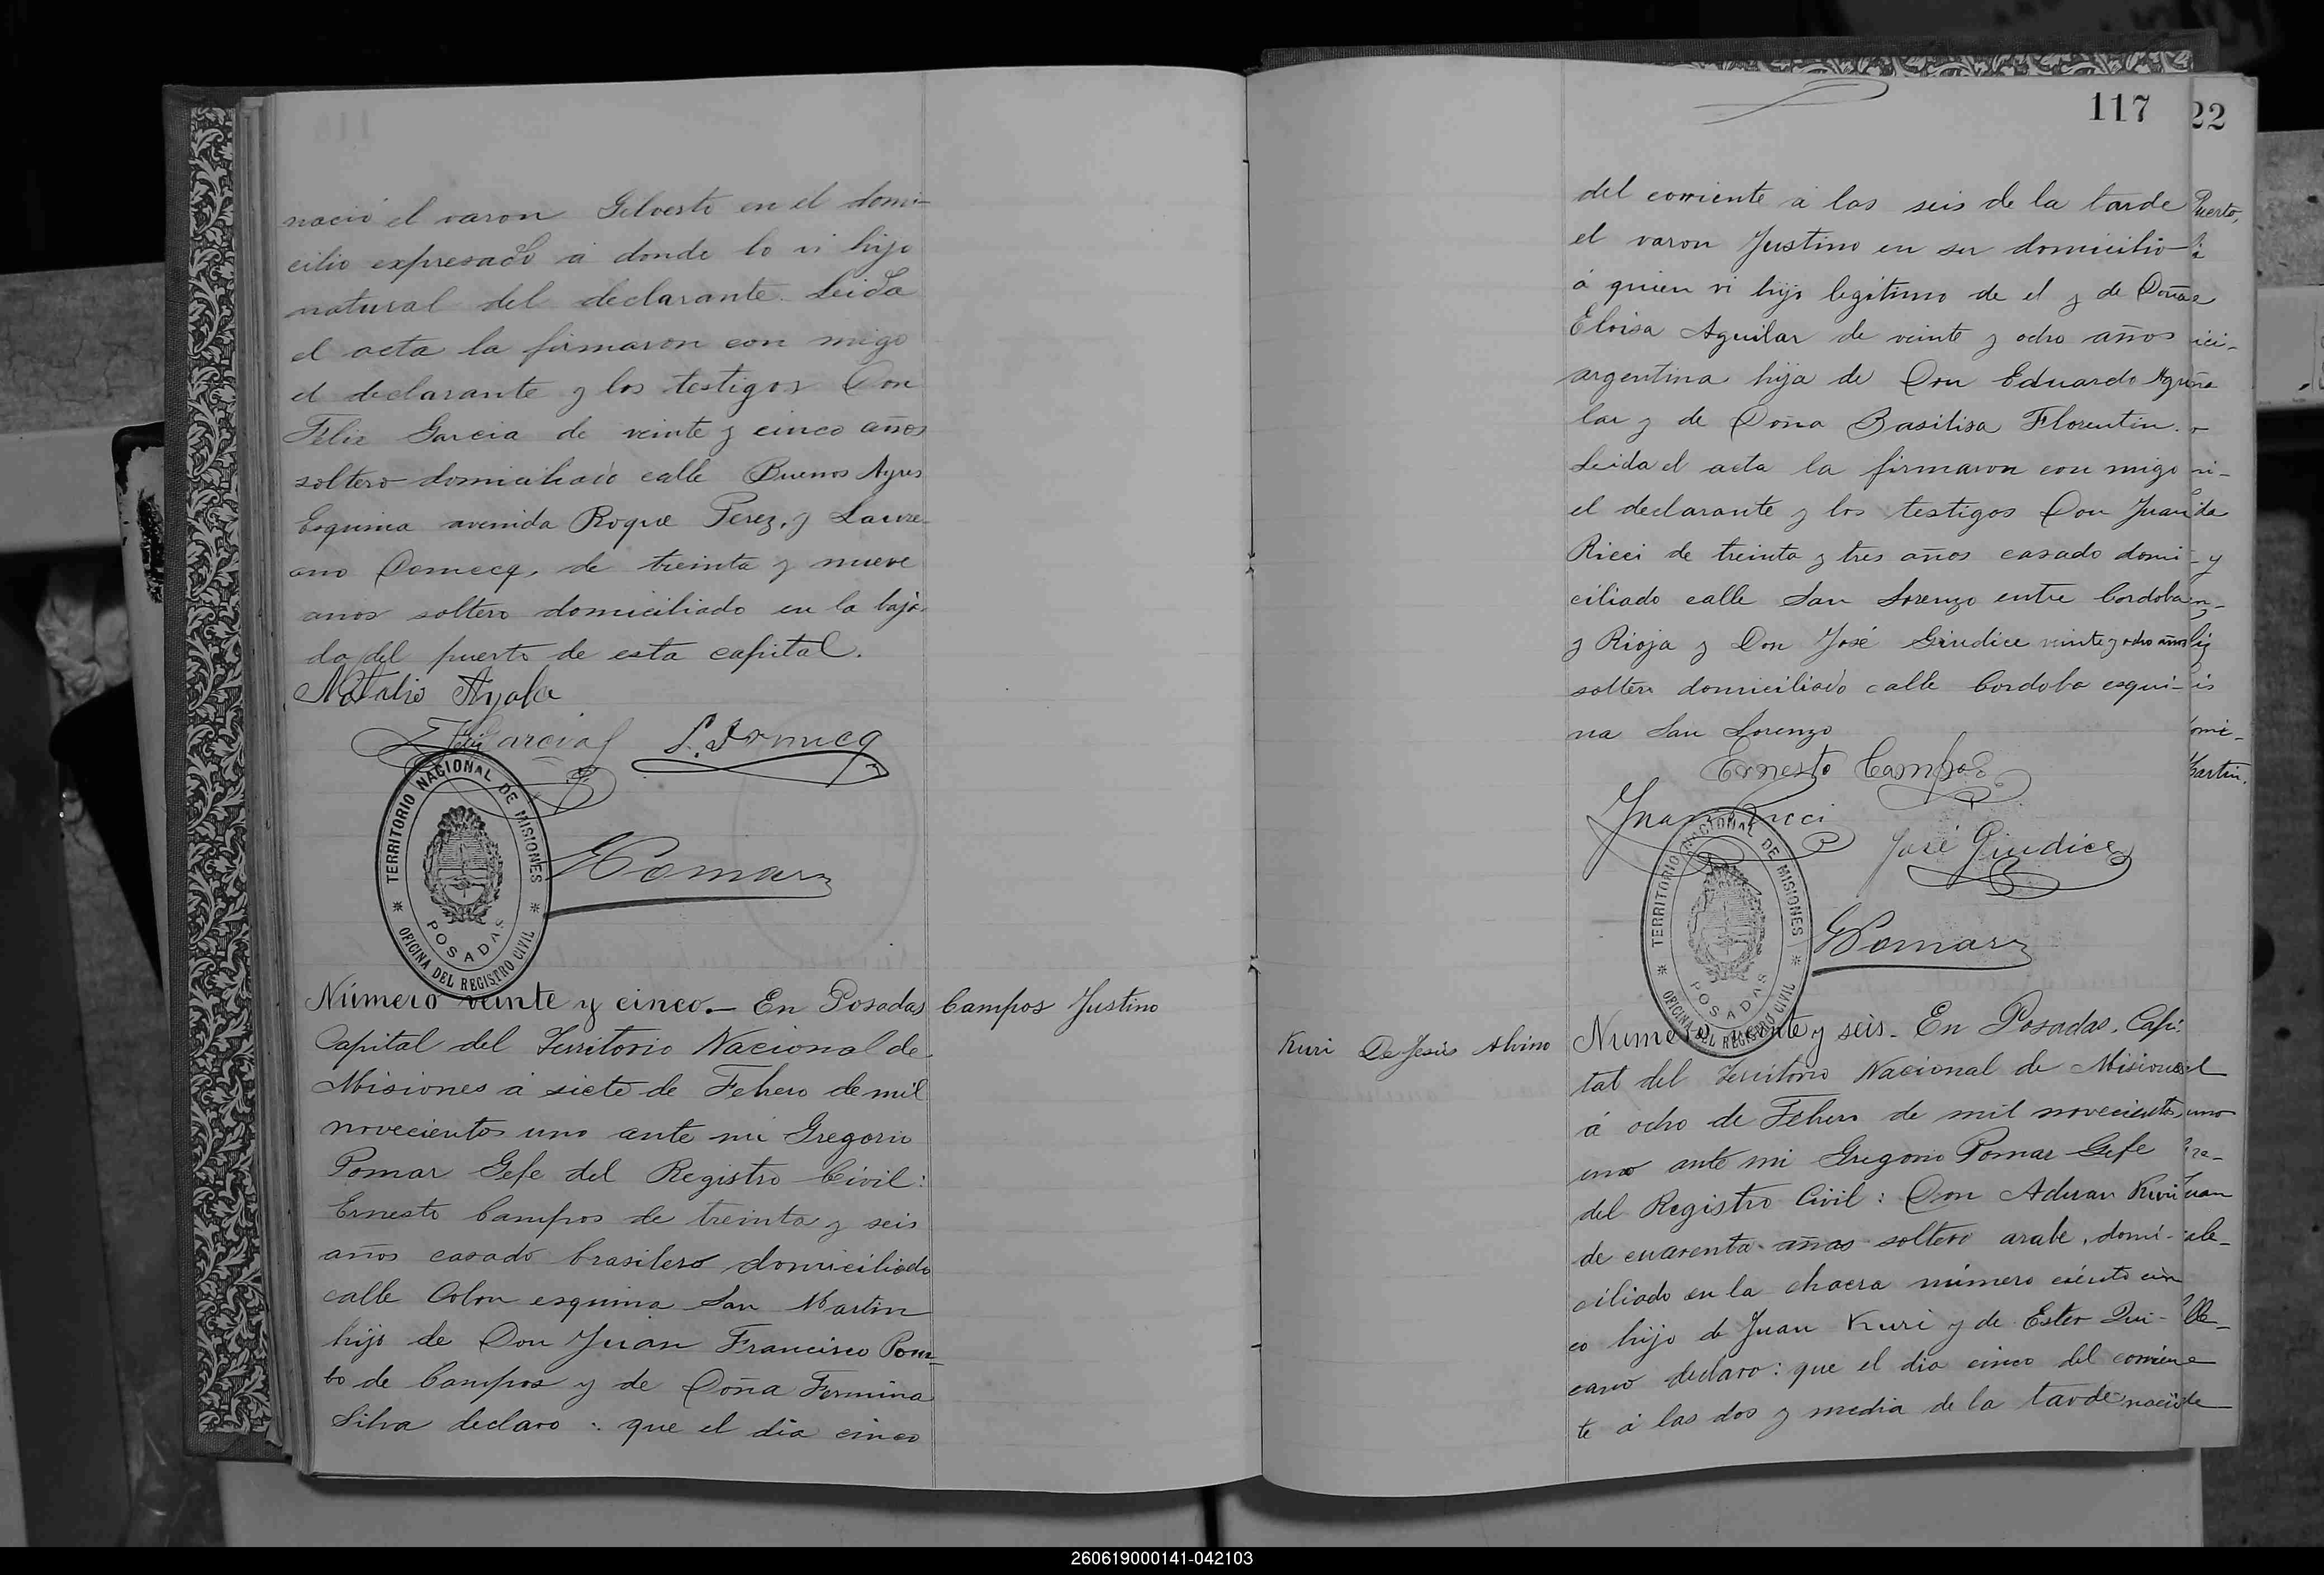 nació el varon Gilverto en el domi-
cilio expresado á donde lo vi hijo
natural del declarante. Leida
el acta la firmaron con migo
el declarante y los testigos Don
Felix Garcia de veinte y cinco años
soltero domiciliado calle Buenos Ayres
Esquina avenida Roque Perez, y Laure-
ano Domecq, de treinta y nueve
anos soltero domiciliado en la baja-
da del puerto de esta capital.
Natalio Ayala
Felix Garcia L. Domecq
TERRITORIO NACIONAL DE MISIONES
POSADAS
OFICINA DEL REGISTRO CIVIL
GPomar
Número veinte y cinco.- En Posadas
Campos Justino
Capital del Territorio Nacional de
Misiones á siete de Febrero de mil
novecientos uno ante mi Gregorio
Pomar Gefe del Registro Civil:
Ernesto Campos de treinta y seis
años casado brasilero domiciliado
calle Colon esquina San Martin
hijo de Don Juan Francisco Pom-
bo de Campos y de Doña Fermina
Silva declaro: que el dia cinco
117
22
del corriente á las seis de la tarde
el varon Justino en su domicilio
á quien vi hijo legitimo de el y de Doña
Eloisa Aguilar de veinte y ocho años
argentina hija de Don Eduardo Agui
lar y de Doña Basilisa Florentin.
Leida el acta la firmaron con migo
el declarante y los testigos Don Juan
Ricci de treinta y tres años casado domi-
ciliado calle San Lorenzo entre Cordoba
y Rioja y Don José Giudice veinte y ocho años
soltero domiciliado calle Cordoba esqui-
na San Lorenzo
Ernesto Campos
Juan Ricci
José Giudice
TERRITORIO NACIONAL DE MISIONES
POSADAS
OFICINA DEL REGISTRO CIVIL
GPomar
Kuri De Jesús Alvino
Numero veinte y seis- En Posadas, Capi-
tal del Territorio Nacional de Misiones
á ocho de Febrero de mil novecientos
uno ante mi Gregorio Pomar Gefe
del Registro Civil: Don Aduan Kuri
de cuarenta años soltero arabe, domi-
ciliado en la chacra número ciento cin
co hijo de Juan Kuri y de Ester Qui-
cano declaro: que el dia cinco del corrien
te á las dos y media de la tarde nació
Puerto,